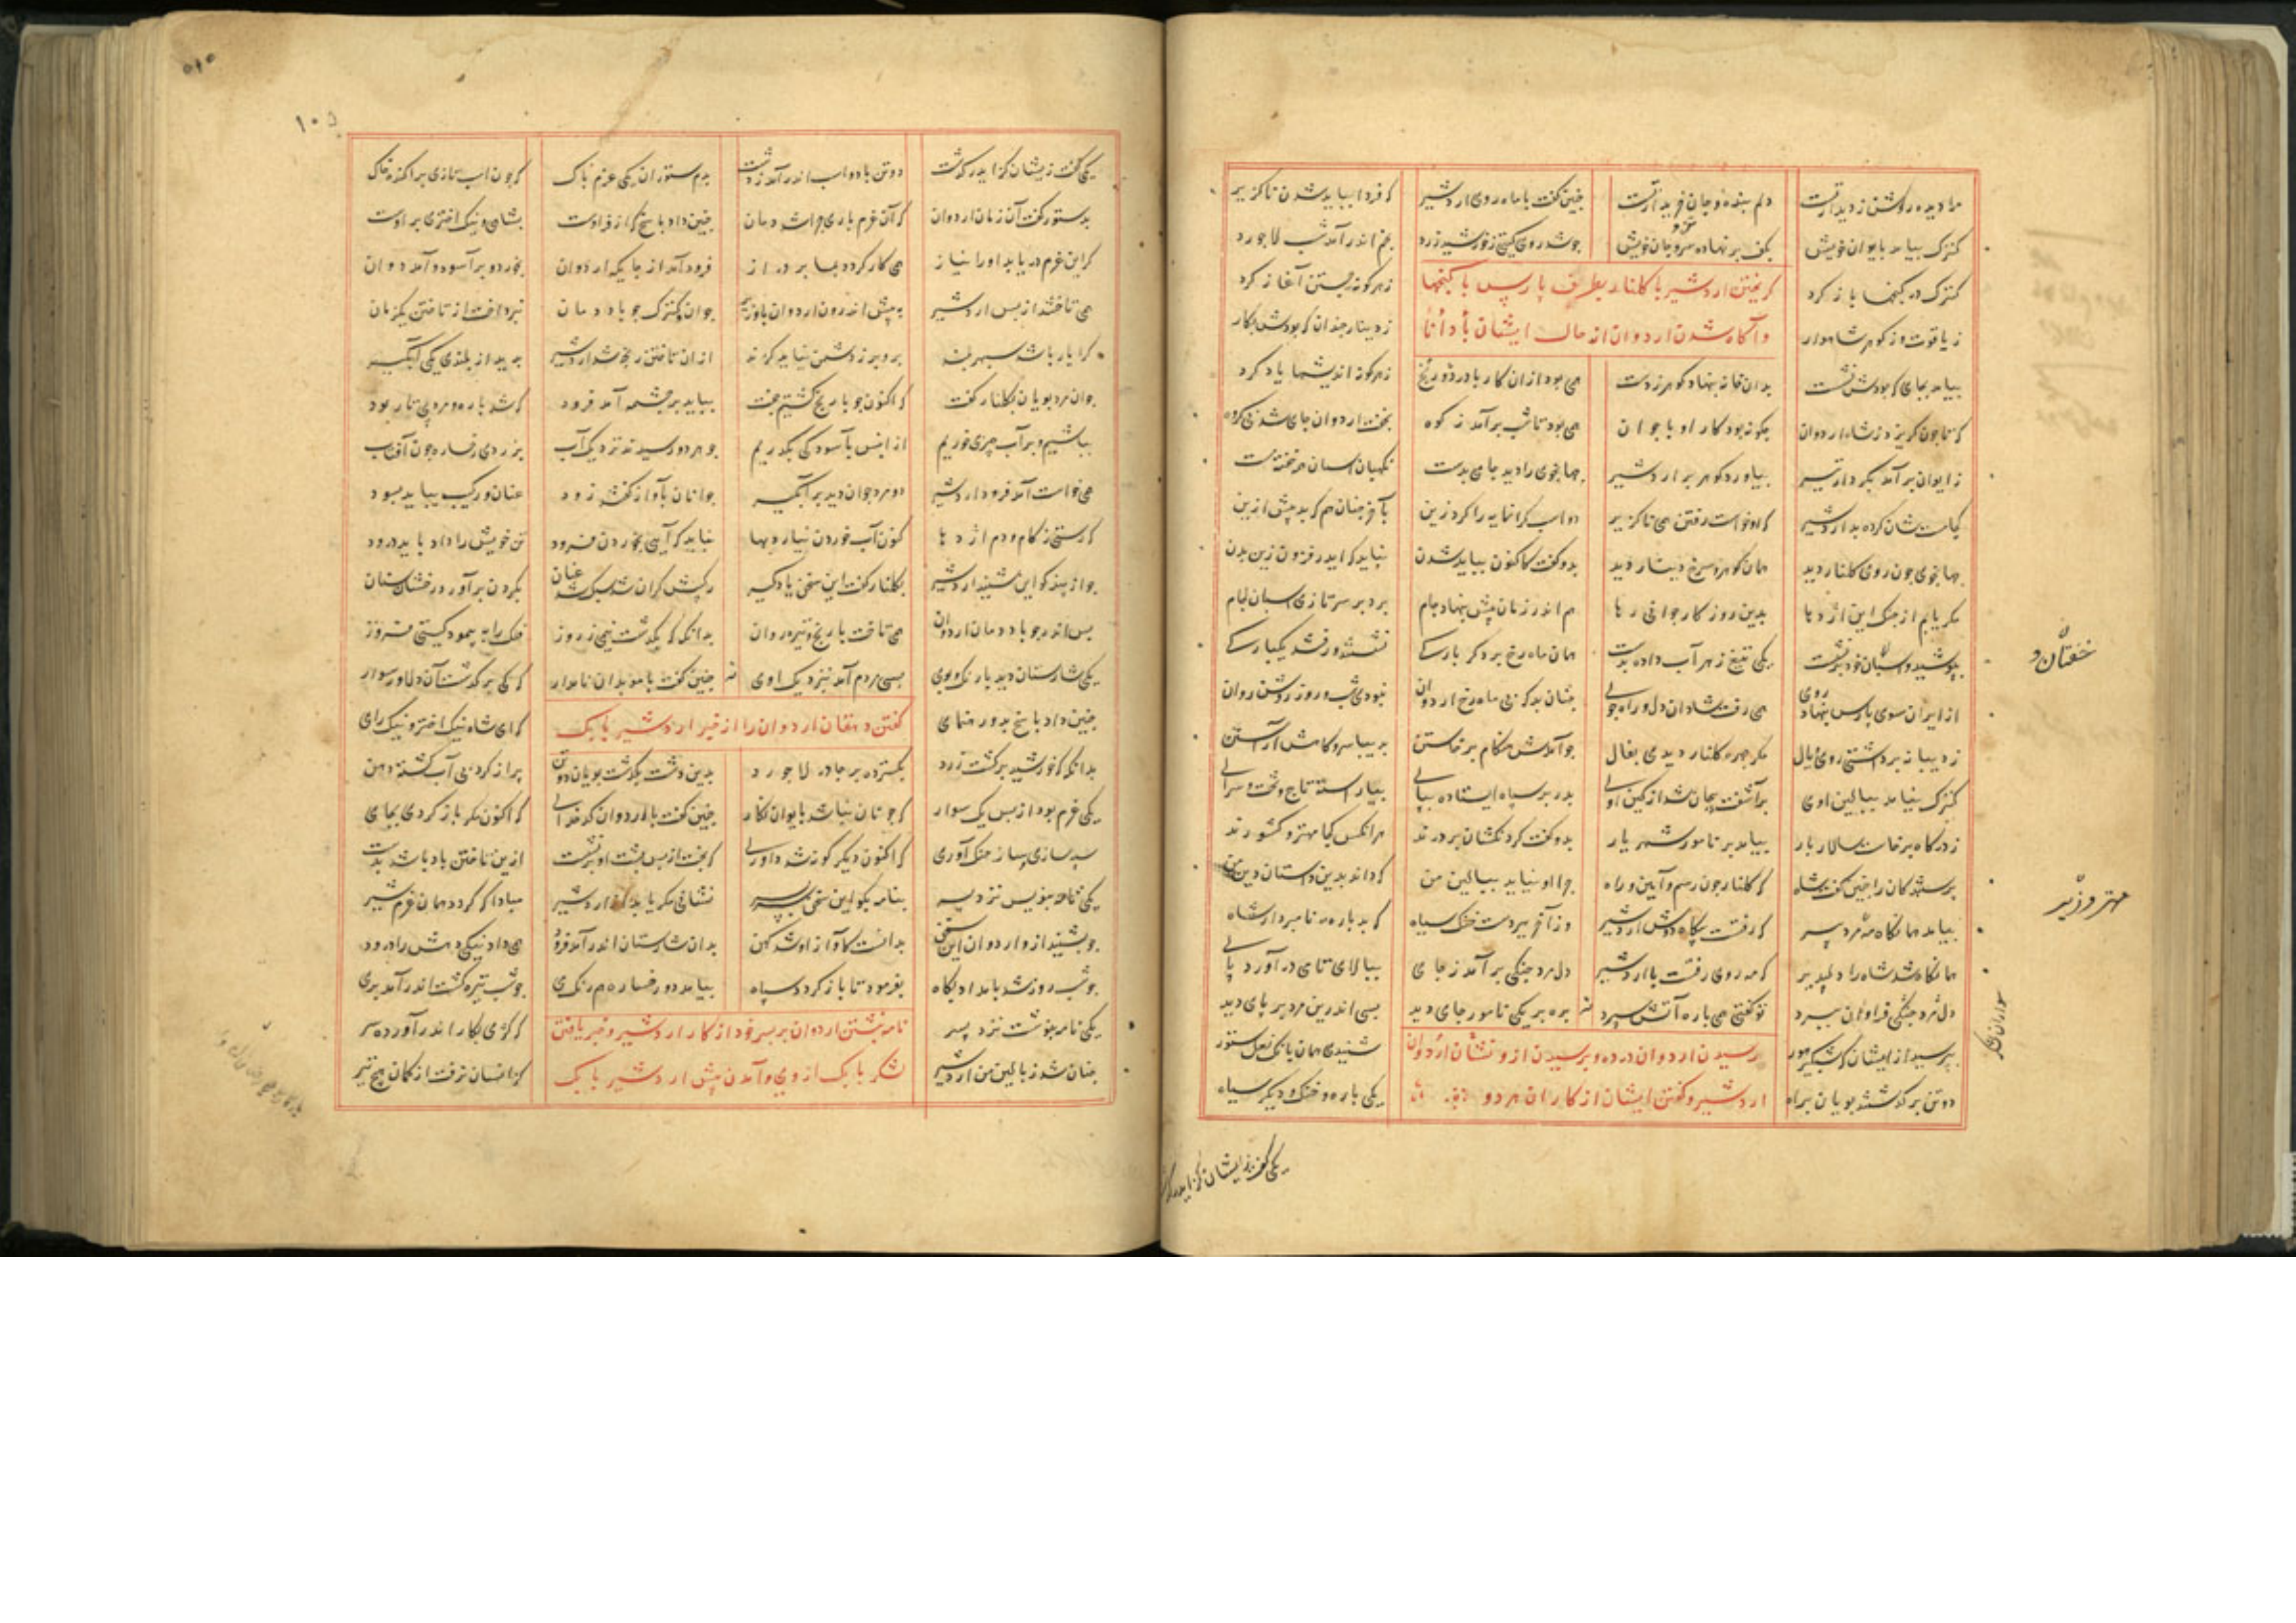 مرا دیده روشن ز دیدار تست دلم بنده و جان خریدار تست چنین گفت با ماه روی اردشیر که فردا بباید شدن ناکزیر
کنزک بیامد بایوان خویش بکف برنهاده سر و جان خویش جو شد روی کیتی ز خورشید زرد بخم اندر آمد شب لاجورد
کنزک در کنجها باز کرد ز هر کونه جستن آغاز کرد
کریختن اردشیر با کلنار بطرف پارس با کنجها
ز یاقوت وز کوهر شاهوار ز دینار چندان که بودش بکار
و آکاه شدن اردوان از حالت ایشان
بیامد بجای که بودش نشست بدان خانه بنهاد کوهر ز دست همی بود از آن کار با درد و رنج ز هر کونه اندیشها یاد کرد
که تا جون کریزد ز شاه اردوان چکونه بود کار او با جوان همی بود تا شب برآمد ز کوه بخفت اردوان جای شد بی کروه
ز ایوان برآمد بکردار تیر بیاورد کوهر بر اردشیر جهانجوی را دید جامی بدست نکهبان اسبان همه خفته مست
کجا مست شان کرده بد اردشیر که او خواست رفتن همی ناکزیر دو اسب کرانمایه را کرد زین بآخر چنان هم که بد پیش ازین
جهانجوی چون روی کلنار دید همان کوهر و سرخ دینار دید بدو کفت کاکنون بباید شدن نباید که ایدر فزون زین بدن
مکر یابم از جنک این اژدها بدین روز کار جوانی رها هم اندر زمان پیش بنهاد جام بزد بر سر تازی اسبان لجام
بپوشید و اسبان خود برنشت یکی تیغ زهر آب داده بدست همان ماه رخ بر دکر بارکی نشستند و رفتند یکبارکی
از ایوان سوی پارس بنهاد روی همی رفت شادان دل و راه جوی چنان بد که بی ماه رخ اردوان نبودی شب و روز روشن روان
ز دیبا نه برداشتی روی و یال مکر چهره کلنار دیدی بفال چو آمدش هنکام برخاستن بدیبا سر و کامش آراستن
کنزک نیامد ببالین اوی برآشفت پیچان شد از کین اوی بدر بر سپاه ایستاده بپای بیاراسته تاج و تخت و سرای
ز درکاه برخاست سالار بار بیامد بر نامور شهریار بدو کفت کردنکشان بر درند هر آنکس کجا مهتر و کشورند
پرستندکان را چنین کفت شاه که کلنار چون رسم و آیین و راه چرا او نیاید ببالین من که داند بدین داستان دین من
بیامد همانکاه مرد پیر که رفت بیکاه دوش اردشیر وز آخر ببردست خنک و سیاه که بد باره نامبردار شاه
همانکاه شد شاه را دلپذیر که مه روی رفت با اردشیر دل مرد جنکی برآمد ز جای ببالای تازی درآورد پای
دل مرد جنکی فراوان ببرد تو کفتی همی باره آتش سپرد بره بر یکی نامور جای دید بسی اندرین مردم و پای دید
بپرسید از ایشان که شبکیر هور شنیدی همان بانک نعل ستور
رسیدن اردوان در ده و پرسیدن از و نشان اردوان
دو تن برکذشتند پویان براه یکی باره و خنک و دیکر سیاه
اردشیر و کفتن ایشان از کاران هر دو
خفتان
مهتر وزیر
سواران
یکی کفت زیشان کز ایدر
یکی کفت زیشان کز ایدر کذشت دو تن با دو اسب اندر آمد ز دشت بدم ستوران یکی غرم پاک که چون اسب تازی براکنده خاک
بدستور کفت آن زمان اردوان که آن غرم باری چرا شد دمان چنین داد پاسخ که آن فر اوست بشاهی و نیک اختری پر اوست
کر این غرم دریابد او را نیاز همی کار کردد بما بر دراز فرود آمد از جایکه اردوان بخورد و برآسود و آمد دوان
همی تاختند از پس اردشیر به پیش اندرون اردوان با وزیر جوان و کنزک چو باد دمان نپرداخت از تاختن یکزمان
کرا یار باشد سپهر بلند برو بر ز دشمن نیاید کزند ازان تاختن رنجه شد اردشیر بدید از بلندی یکی آبکیر
جوان مرد پویان بکلنار کفت که اکنون چو با رنج کشتیم جفت بباید برچشمه آمد فرود که شد باره و مرد بی تار پود
بباشیم و بر آب چیزی خوریم از آن پس بآسودکی بکذریم چو هر دو رسیدند نزدیک آب بزردی رخساره چون آفتاب
همی خواست آمد فرود اردشیر دو مرد جوان دید بر آبکیر جوانان بآواز کفتند زود عنان و رکیب بباید بسود
که رستی ز کام و دم اژدها کنون آب خوردن نیارد بها نباید که آیی بخوردن فرود تن خویش را داد باید درود
چو از پندکو این شنید اردشیر بکلنار کفت این سخن یادکیر رکیبش کران شد سبک شد عنان بکردن برآورد رخشان سنان
پس اندر چو باد دمان اردوان همی تاخت با رنج و تیره روان بدانکه که بکذشت نیمی ز روز فلک را به پیمود کیتی فروز
یکی شارستان دید با رنک و بوی بسی مردم آمد نزدیک اوی چنین کفت با موبدان نامدار که کی برکذشت آن دلاور سوار
چنین داد پاسخ بدو رهنمای که ای شاه نیک اختر و نیک رای
کفتن دهقان اردوان را از خبر اردشیر بابک
بدانکه که خورشید برکشت زرد بکسترد بر چادر لاجورد بدین دشت بکذشت پویان دو تن پر از کرد بی آب کشته دهن
یکی غرم بود از پس یک سوار که چونان نباشد بایوان نکار چنین کفت با اردوان کدخدای که اکنون مکر باز کردی بجای
سپه سازی و ساز جنک آوری که اکنون دیکر کونه شد داوری که بخت از پس پشت او برنشت ازین تاختن باد باشد بدست
یکی نامه بنویس نزد پسر بنامه بکو این سخن سربسر نشانی مکر یابد از اردشیر مبادا که کردد همان غرم شیر
چو بشنید ازو اردوان این سخن بدانست کآواز او شد کهن بدان شارستان اندر آمد فرود همی داد نیکی دهش را درود
چو شب روز شد بامداد پکاه بفرمود تا باز کردد سپاه بیامد دو رخساره همرنک نی چو شب تیره کشت اندر آمد بری
یکی نامه بنوشت نزد پسر که کژی بکار اندر آورده سر
نامه نبشتن اردوان بر پسر خود از کار اردشیر و خبر یافتن
چنان شد ز بالین من اردشیر کزانسان نرفت از کمان هیچ تیر
بابک از وی و آمدن پیش اردشیر بابک